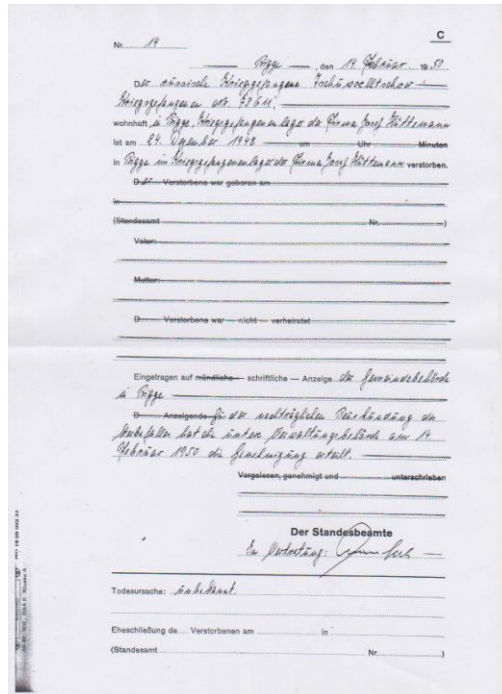 C
Nr. 19
Bigge, den 14. Februar 1950
Der russische Kriegsgefangene
Kriegsgefangenen Nr. 73611,
wohnhaft in Bigge, Kriegsgefangenenlager der Firma Josef Hüttemann
ist am 24. Dezember 1942 um Uhr Minuten
in Bigge im Kriegsgefangenenlager der Firma Josef Hüttemann verstorben.
D er Verstorbene war geboren am
in
(Standesamt Nr. )
Vater:
Mutter:
D Verstorbene war — nicht — verheiratet
Eingetragen auf mündliche — schriftliche — Anzeige der Gemeindebehörde
in Bigge
D Anzeigende Zu der nachträglichen Beurkundung des
Sterbefalles hat die untere Verwaltungsbehörde am 14
Februar 1950 die Genehmigung erteilt.
Vorgelesen, genehmigt und unterschrieben
Der Standesbeamte
In Vertretung:
Todesursache: unbekannt
Eheschließung de Verstorbenen am in
(Standesamt Nr. )